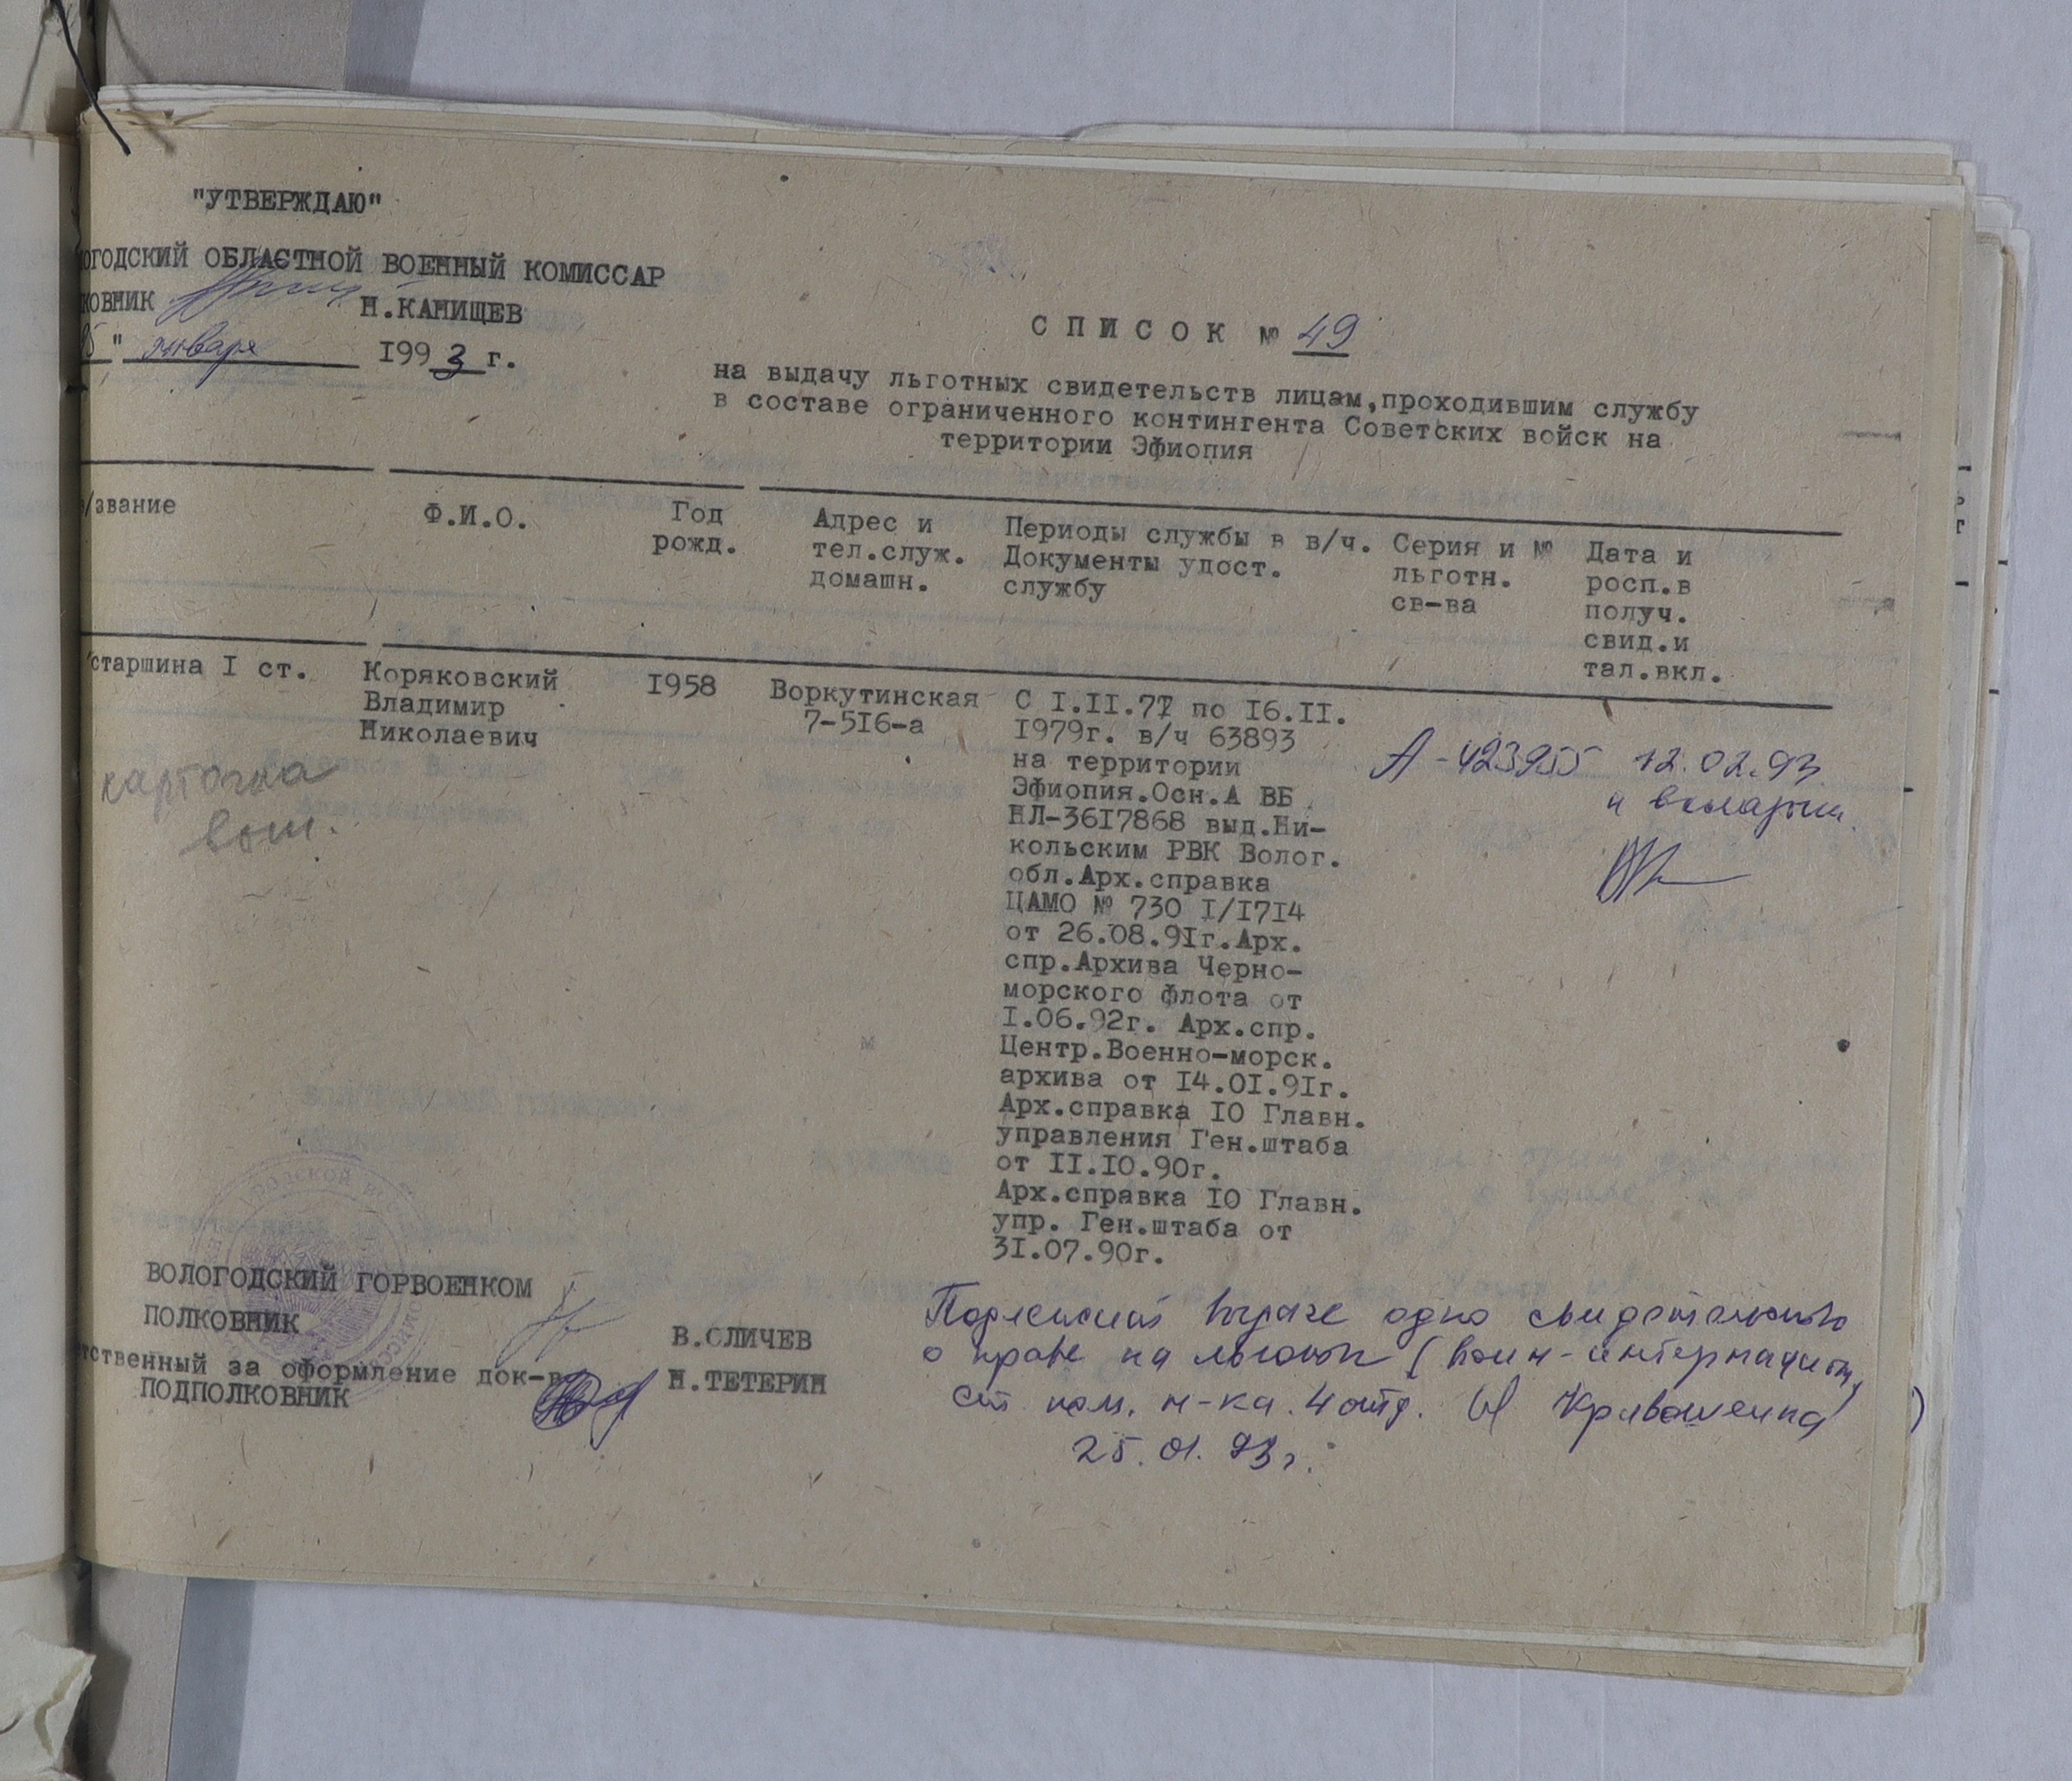 "УТВЕРЖДАЮ"
ОГОДСКИЙ ОБЛАСТНОЙ ВОЕННЫЙ КОМИССАР
КОВНИК Н.КАНИЩЕВ
" января 1993 г.
С П И С О К № 49
на выдачу льготных свидетельств лицам,проходившим службу
в составе ограниченного контингента Советских войск на
территории Эфиопия
/звание
Ф.И.О.
Год
рожд.
Адрес и
тел.служ.
домашн.
Периоды службы в в/ч.
Документы удост.
службу
Серия и №
льготн.
св-ва
Дата и
росп.в
получ.
свид.и
тал.вкл.
старшина I ст.
Коряковский
Владимир
Николаевич
I958
Воркутинская
7-5I6-а
С I.II.77 по I6.II.
I979г. в/ч 63893
на территории
Эфиопия.Осн.А ВБ
НЛ-36I7868 выд.Ни-
кольским РВК Волог.
обл.Арх.справка
ЦАМО № 730 I/I7I4
от 26.08.9Iг.Арх.
спр.Архива Черно-
морского флота от
I.06.92г. Арх.спр.
Центр.Военно-морск.
архива от I4.0I.9Iг.
Арх.справка I0 Главн.
управления Ген.штаба
от II.I0.90г.
Арх.справка I0 Главн.
упр. Ген.штаба от
3I.07.90г.
А-423955
12.02.93
карточка
ВОЛОГОДСКИЙ ГОРВОЕНКОМ
ПОЛКОВНИК
В.СЛИЧЕВ
тственный за оформление док-в
ПОДПОЛКОВНИК
Н.ТЕТЕРИН
Подлежит выдаче одно свидетельство
о праве на льготы (воин-интернацион.
)
ст. пом. н-ка. 4 отд. Кривошеина
25.01.93г.